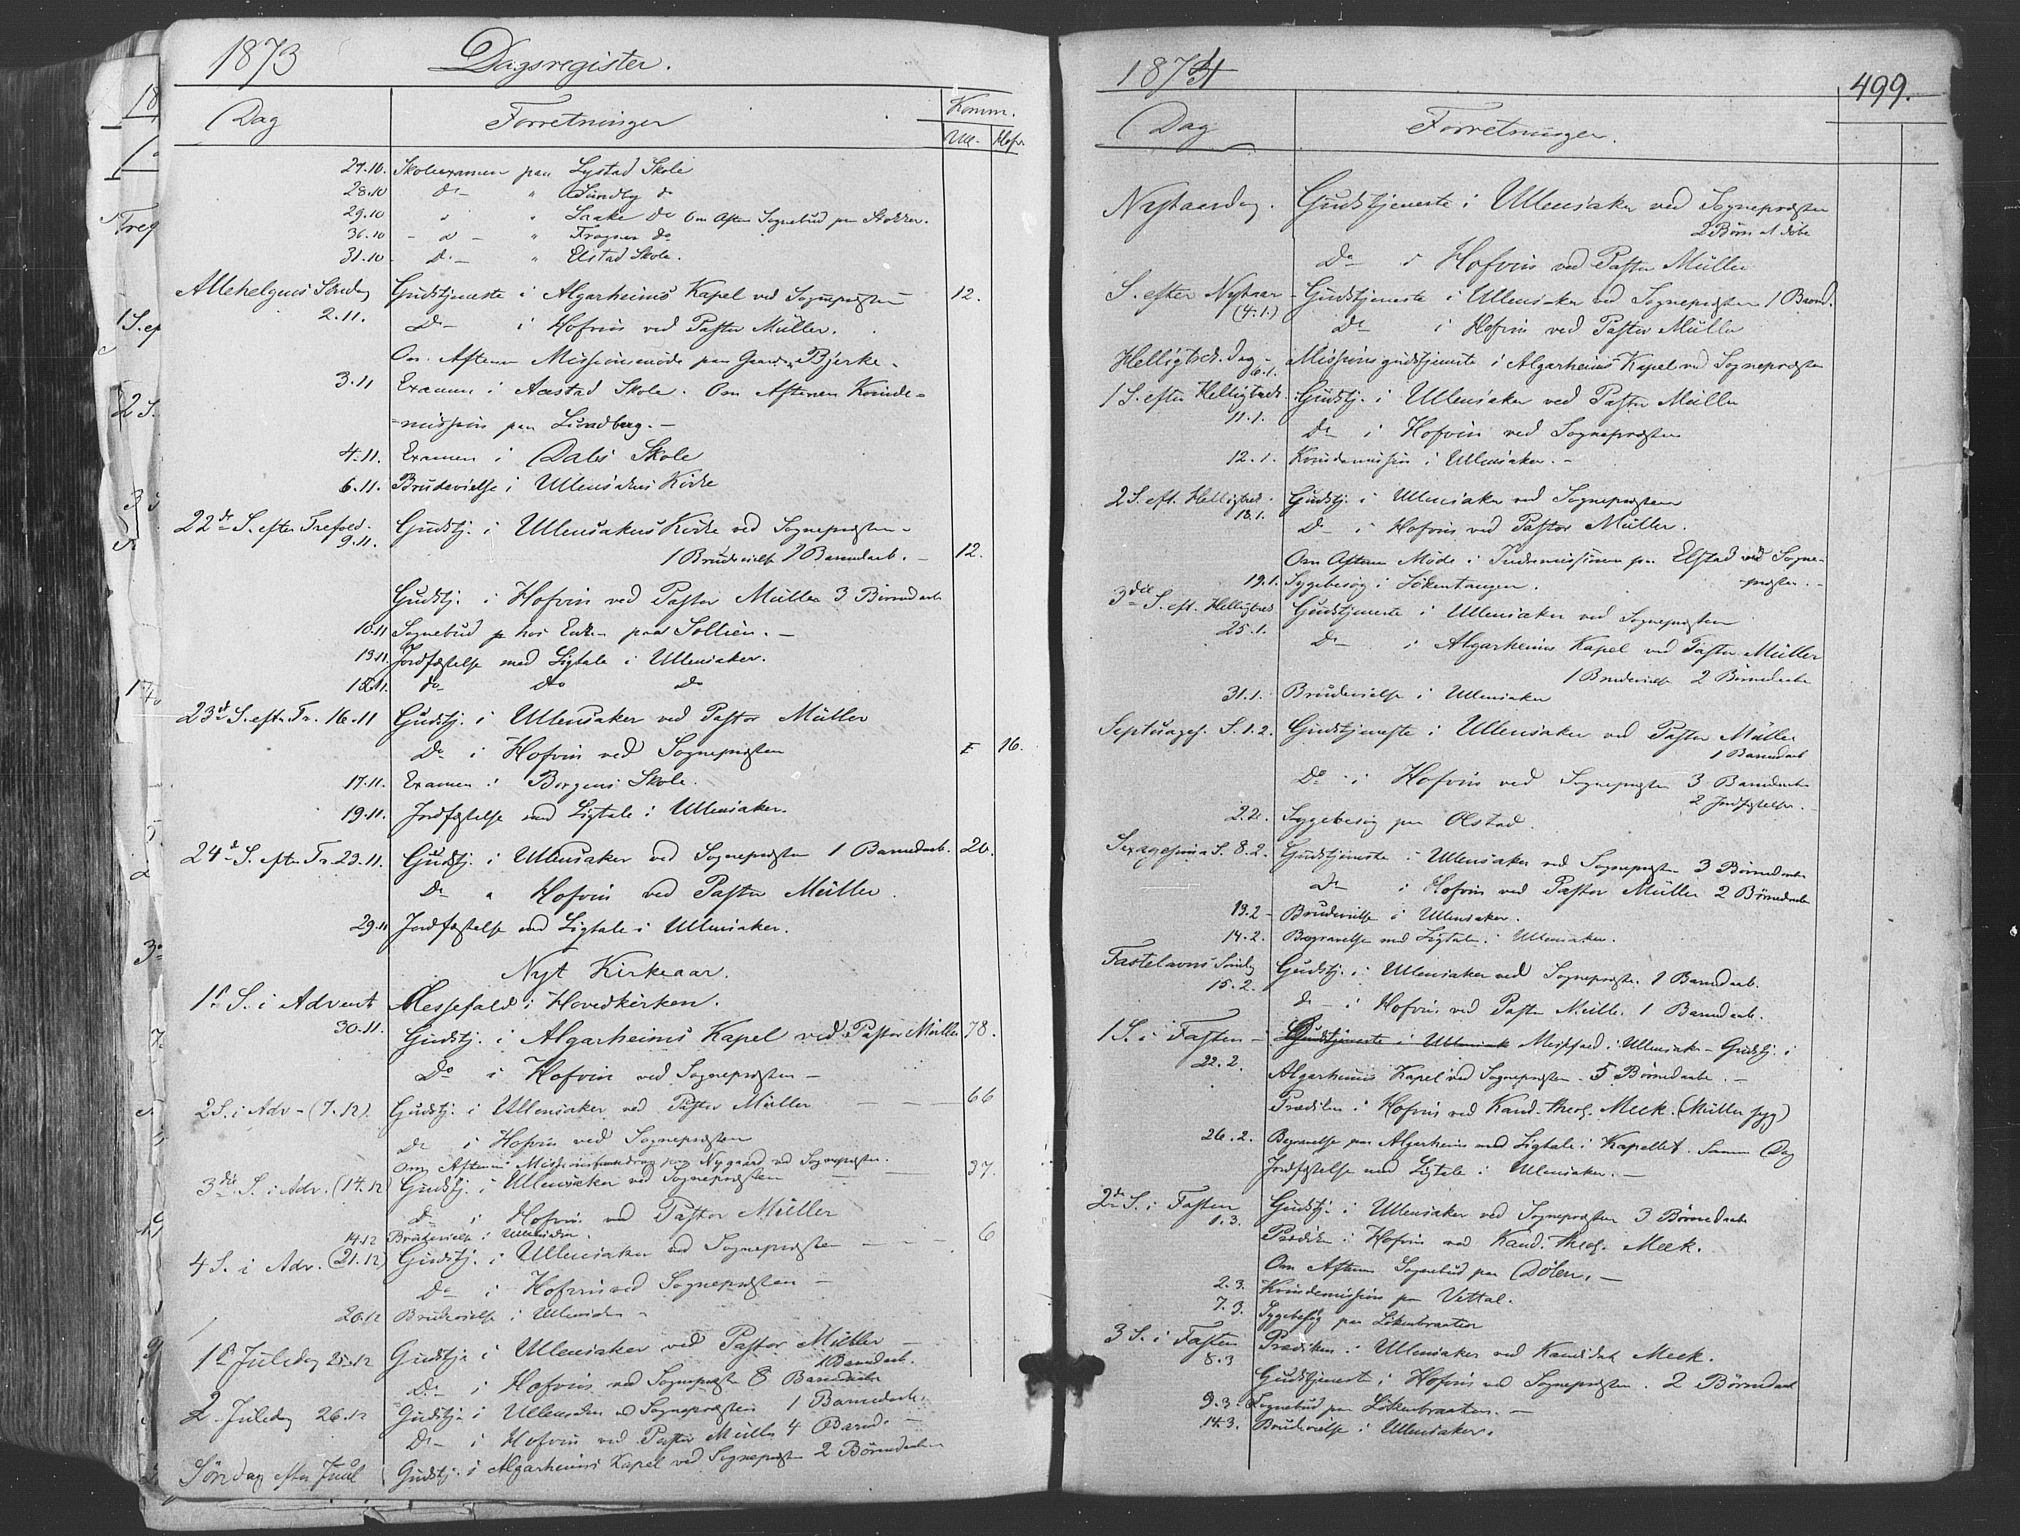 1873 Dagsregister.
Dag Forretninger Komm.
Ull. Hofv.
27.10. Skoleexamen paa Lystad Skole
28.10 do " Sundby do
29.10 " " do Om Aften Sognebud paa
30.10 - d - " Frogner do
31.10 - Do - " Elstad Skole.
Allehelgens Søndag Gudstjeneste i Algarheims Kapel ved Sognepræsten 12.
2.11. Do - i Hofvin ved Pastor Müller.
Om Aftenen Missionsmøde paa Gaarden Bjerke.
3.11 Examen i Aastad Skole. Om Aftenen Kvinde-
-mission paa Lundberg. -
4.11. Examen i Dales Skole
6.11. Brudevielse i Ullensakers Kirke
22de S. efter Trefold. Gudstj. i Ullensakers Kirke ved Sognepræsten -
9.11. 1 Brudevielse 2 Barnedaab. - 12.
Gudstj. i Hofvin ved Pastor Müller 3 Børnedaab
10.11 Sognebud hos Enken paa Sollien. -
13.11. Jordfæstelse med Ligtale i Ullensaker.
15.11. do do do
23de S. eftr Tr. 16.11 Gudstj. i Ullensaker ved Pastor Müller
Do i Hofvin ved Sognepræsten 16.
17.11. Examen i Borgens Skole.
19.11. Jordfæstelse med Ligtale i Ullensaker.
24de S. efter Tr. 23.11. Gudstj. i Ullensaker ved Sognepræsten 1 Barnedaab. 26.
Do " Hofvin ved Pastor Müller.
29.11 Jordfæstelse med Ligtale i Ullensaker.
Nyt Kirkeaar.
1ste S. i Advent Messefald i Hovedkirken.
30.11. Gudstj. i Algarheims Kapel ved Pastor Müller 78.
Do i Hofvin ved Sognepræsten -
2 S. i Adv - (7.12). Gudstj. i Ullensaker ved Pastor Müller - - 66
Do i Hofvin ved Sognepræsten
Om Aftenen paa Nygaard ved Sognepræsten.
3die S. i Adv. (14.12) Gudstj. i Ullensaker ved Sognepræsten - 37.
Do i Hofvin ved Pastor Müller
14.12 Brudevielse i Ullensaker.
4 S. i Adv. (21.12) Gudstj. i Ullensaker ved Sognepræsten - - - 6
Do i Hofvin ved Sognepræsten -
20.12 Brudevielse i Ullensaker -
1ste Juledag 25.12 Gudstj. i Ullensaker ved Pastor Müller -
1 Barnedaab.
Do - i Hofvin ved Sognepræsten 8 Barnedaab
2. Juledag 26.12 Gudstj. i Ullensaker ved Sognepræsten 1 Barnedaab.
Do - i Hofvin ved Pastor Müller 4 Barned. -
Søndag efter Juul Gudstj. i Algarheims Kapel ved Sognepræsten 2 Børnedaab
1874 499.
Dag Forretninger.
Nytaarsdag. Gudstjeneste i Ullensaker ved Sognepræsten
2 Børn at døbe
Do i Hofvin ved Pastor Müller
S. efter Nytaar - Gudstjeneste i Ullensaker ved Sognepræsten 1 Barned.
(4.1.) Do i Hofvin ved Pastor Müller
Helligtr.k. Dag - Missionsgudstjeneste i Algarheims Kapel ved Sognepræsten
6.1.
1 S. efter Helligtrek. Gudstj. i Ullensaker ved Pastor Müller
11.1. Do i Hofvin ved Sognepræsten
12.1. Kvindemission i Ullensaker. -
2 S. eft. Helligtrek. Gudstj. i Ullensaker ved Sognepræsten
18.1. Do - i Hofvin ved Pastor Müller.
Om Aftenen Møde i Indremissionen paa Elstad ved Sogne-
19.1. Sygebesøg i Løkentangen. -præsten. -
3die S. eft. Helligtrek Gudstjeneste i Ullensaker ved Sognepræsten
25.1. Do - i Algarheims Kapel ved Pastor Müller
1 Brudevielse 2 Børnedaab
31.1. Brudevielse i Ullensaker
Septuages. S. 1.2. Gudstjeneste i Ullensaker ved Pastor Müller
1 Barnedaab
Do - i Hofvin ved Sognepræsten 3 Barnedaab
2 Jordfæstelser.
2.2. Sygebesøg paa Olstad.
Sexagesima S. 8.2. Gudstjeneste i Ullensaker ved Sognepræsten 3 Børnedaab
Do i Hofvin ved Pastor Müller 2 Børnedaab
13.2 - Brudevielse i Ullensaker.
14.2. Begravelse med Ligtale i Ullensaker.
Fastelavns Søndag Gudstj. i Ullensaker ved Sognepræsten 1 Barnedaab.
15.2. do - i Hofvin ved Pastor Müller. 1 Barnedaab.
1 S. i Fasten - Gudstjeneste i Ullensaker Messefald i Ullensaker - Gudstj. i
22.2. Algarheims Kapel ved Sognepræsten. 5 Børnedaab. -
Prædiken i Hofvin ved Kand. theol. Meek. (Müller syg)
26.2. Begravelse paa Algarheim med Ligtale i Kapellet. Samme Dag
Jordfæstelse med Ligtale i Ullensaker. -
2den S. i Fasten Gudstj. i Ullensaker ved Sognepræsten 3 Børnedaab
1.3. Prædiken i Hofvin ved Kand. theol. Meek.
Om Aftenen Sognebud paa Dølen. -
2.3. Kvindemission paa Vittal.
7.3. Sygebesøg paa Løkenbraaten
3 S. i Fasten Prædiken i Ullensaker ved Kandidat Meek.
8.3 Gudstjenest i Hofvin ved Sognepræsten. 2 Børnedaab
9.3. Sognebud paa Løkenbraaten. -
14.3. Brudevielse i Ullensaker.